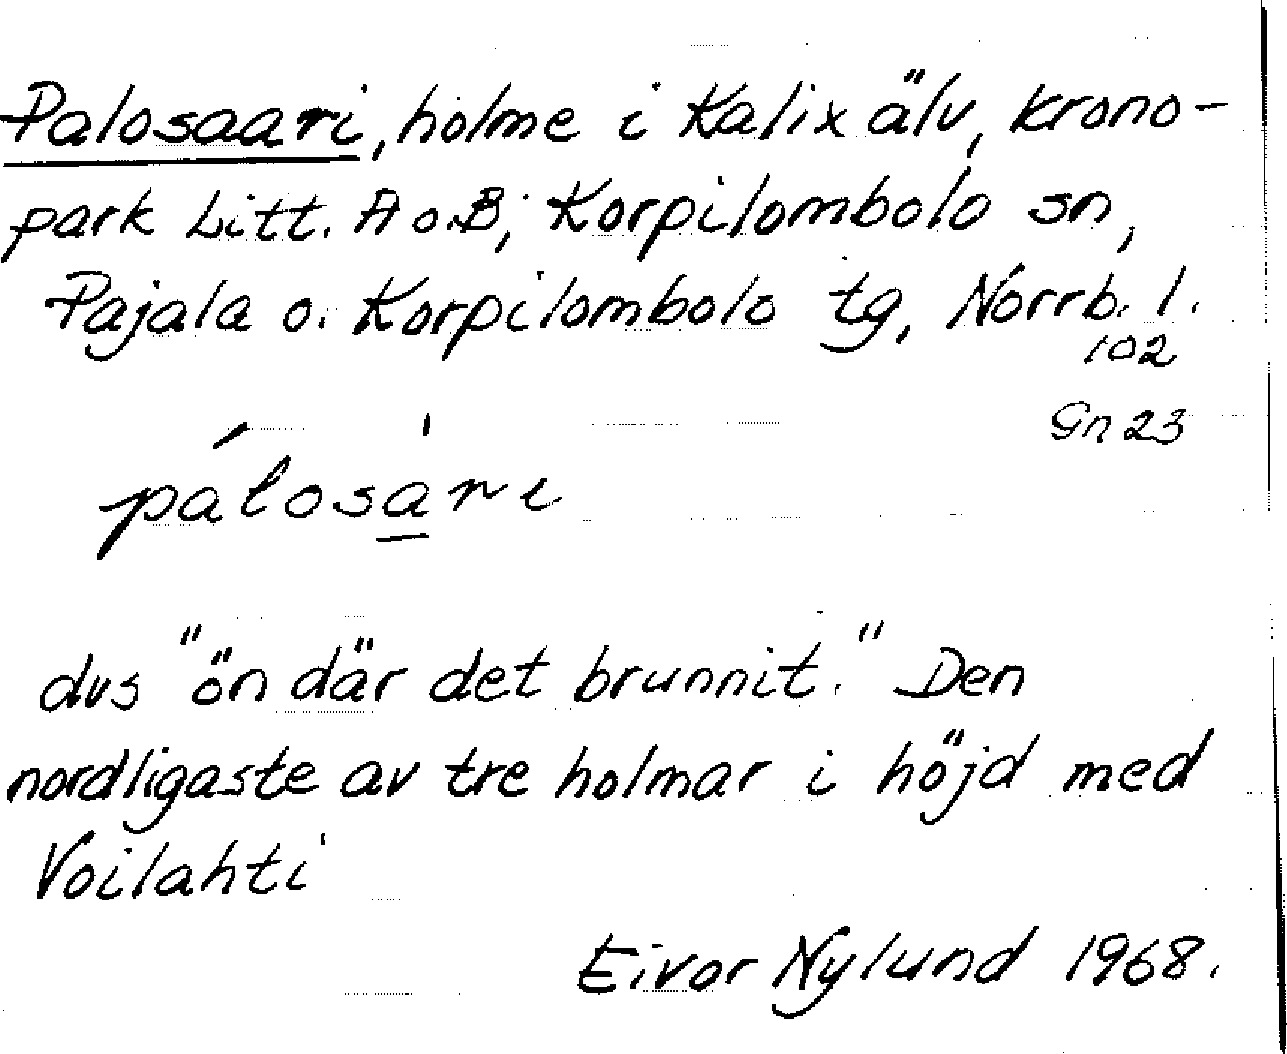 Palosaari, holme i Kalix älv, krono-
park Litt. A o. B; Korpilombolo sn,
Pajala o. Korpilombolo tg, Norrb. l.
102
Gn 23
pálosȧ̱ri
dvs "ön där det brunnit." Den
nordligaste av tre holmar i höjd med
Voilahti
Eivor Nylund 1968.